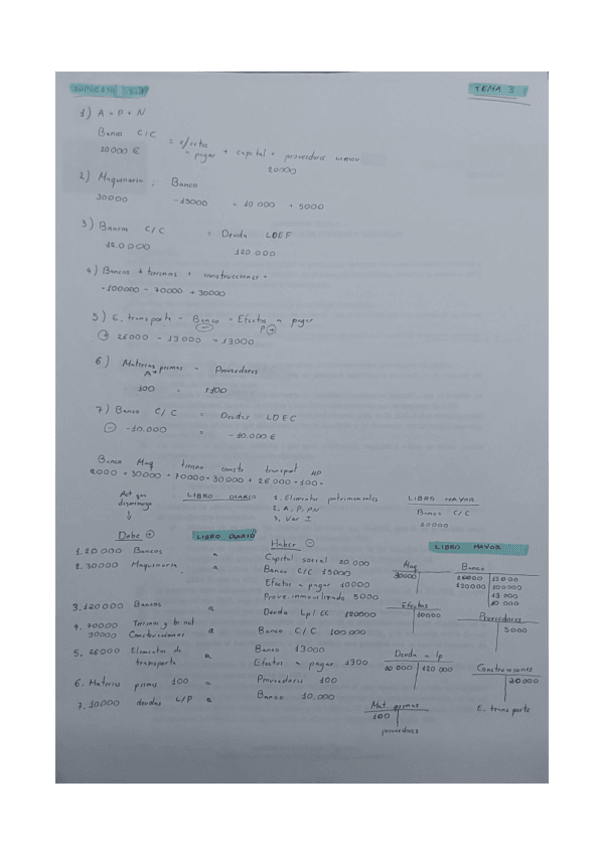 TEMA 3
1) A = P + N
Banco C/C = efectos a pagar + capital + proveedores inmov.
20000 € 20000
2) Maquinaria ; Banco
30000 -15000 = 10 000 + 5000
3) Bancos C/C = Deuda LDEF
120.000 120 000
4) Bancos + terrenos + construcciones =
-100000 - 70000 + 30000
5) E. transporte - Banco = Efectos a pagar
(-) P(+)
(+) 26000 - 13000 = 13000
6) Materias primas = Proveedores
A+
100 = 1100
7) Banco C/C = Deudas LDEC
(-) -10.000 = -10.000 €
Banco Maq. terreno const. transport MP
2000 + 30000 + 70000 + 30000 + 26000 + 100 =
Act que disminuya
LIBRO DIARIO
1. Elementos patrimoniales
2. A, P, PN
3. Var ±
LIBRO MAYOR
Banco C/C
20000
Debe (+)
LIBRO DIARIO
Haber (-)
LIBRO MAYOR
1. 20000 Bancos a Capital social 20.000
2. 30000 Maquinaria a Banco C/C 15000
Efectos a pagar 10000
Prove. inmovilizado 5000
3. 120000 Bancos a Deuda Lp/EC 120000
4. 70000 Terrenos y b. nat
30000 Construcciones a Banco C/C 100.000
5. 26000 Elementos de transporte a Banco 13000
Efectos a pagar 1300
6. Materias primas 100 a Proveedores 100
7. 10000 deudas L/P a Banco 10.000
Maq
30000
Banco
120000
13 000
Efectos
10000
Proveedores
5000
Deuda a lp
10 000 120 000
Construcciones
Mat. primas
100
E. transporte
proveedores